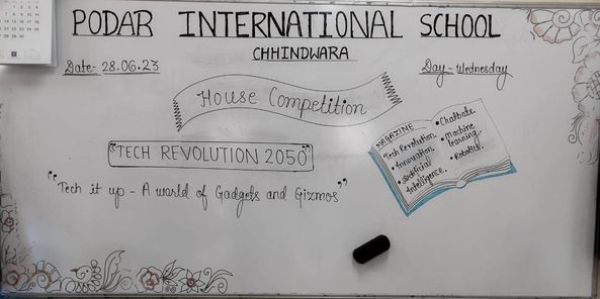 PODAR INTERNATIONAL SCHOOL
CHHINDWARA
Date:- 28.06.23
Day - Wednesday
House Competition
"TECH REVOLUTION 2050"
"Tech it up - A world of Gadgets and Gizmos"
MAGAZINE
Tech Revolution.
• Innovation.
• Artificial
Intelligence.
• Chatbots
• Machine
learning
• Robotics.